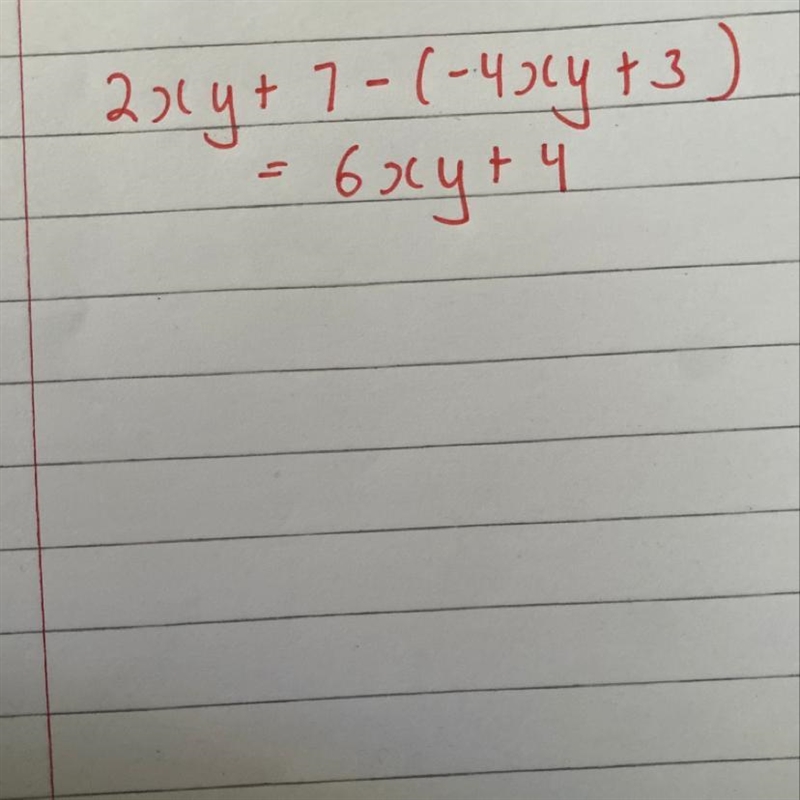 2xy + 7 - (-4xy + 3)
= 6xy + 4